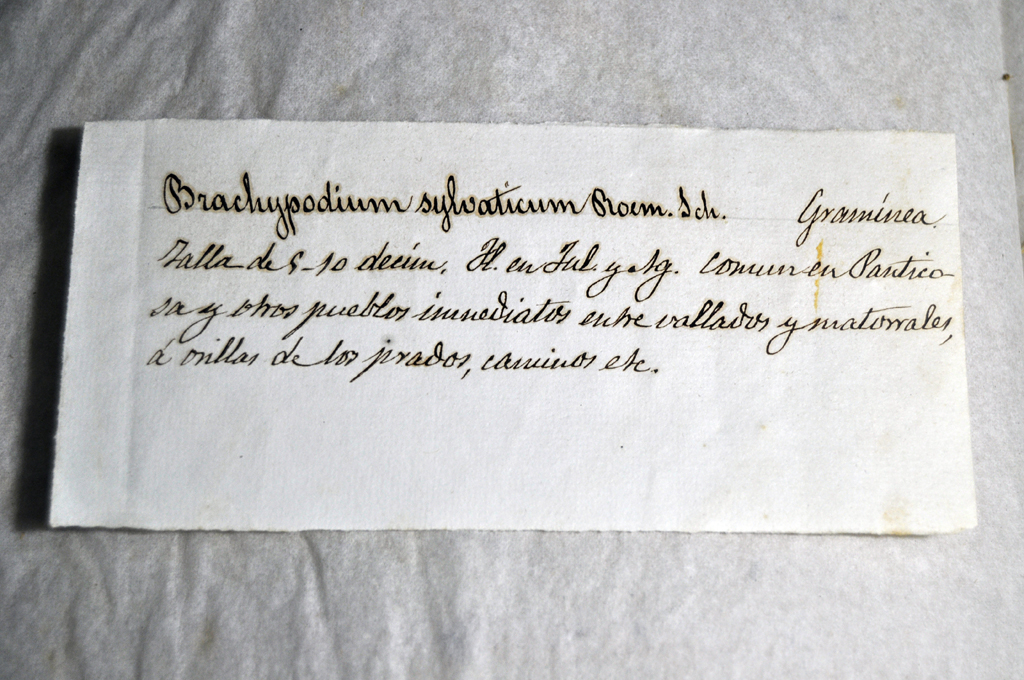 Brachypodium sylvaticum Roem. Sch. Gramínea.
Talla de 5-10 decím. Fl. en Jul. y Ag. comun en Pantico-
sa y otros pueblos inmediatos entre vallados y matorrales,
á orillas de los prados, caminos etc.